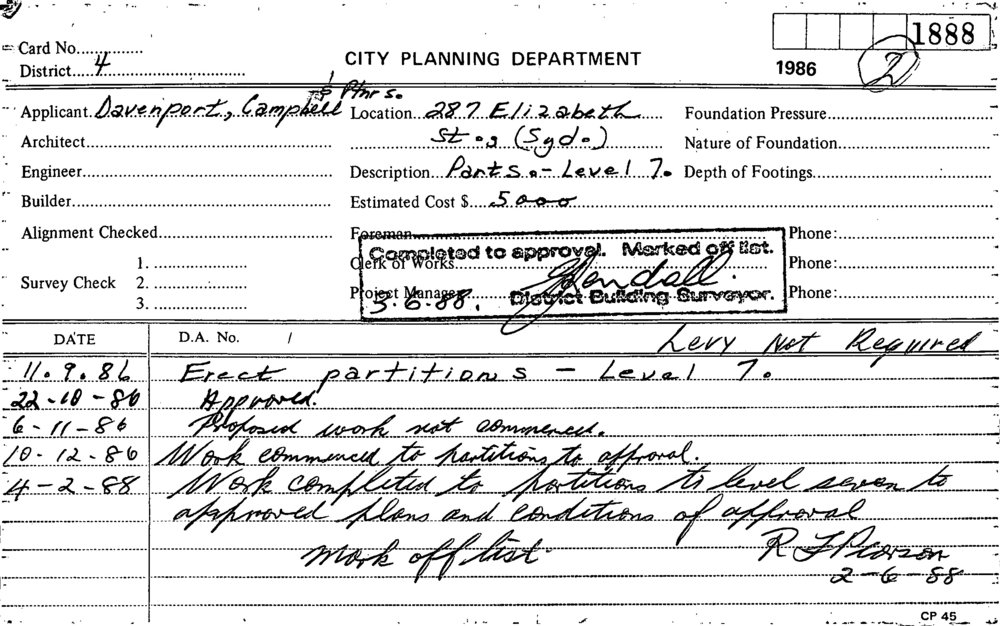 1888
Card No...............
District....4...................................
CITY PLANNING DEPARTMENT
1986
2
Applicant Davenport, Campbell & Ptnrs.
Location 287 Elizabeth
St., (Syd.)
Foundation Pressure
Architect
Nature of Foundation
Engineer
Description Parts. - Level 7.
Depth of Footings
Builder
Estimated Cost $ 5000
Alignment Checked
Foreman
Phone:
Completed to approval. Marked off list.
Survey Check
1.
2.
3.
Clerk of Works
Phone:
Project Manager
3.6.88.
District Building Surveyor.
Phone:
DATE
D.A. No. /
Levy Not Required
11.9.86 Erect partitions - Level 7.
22-10-86 Approved.
6-11-86 Proposed work not commenced.
10-12-86 Work commenced to partitions to approval.
4-2-88 Work completed to partitions to level seven to
approved plans and conditions of approval
Mark off list.
R F Pearson
2-6-88
CP 45